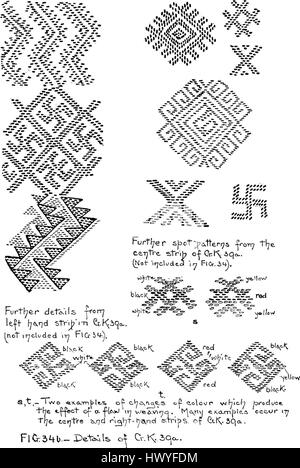 Further spot patterns from the
centre strip of Cr.K.39a.
(Not included in FIG. 34).
Further details from
left hand strip in Cr.K.39a.
(not included in FIG. 34).
white
yellow
black
red
white
yellow
s
black
black
red
black
white
white
yellow
black
black
red
black
t.
s,t.– Two examples of changes of colour which produce
the effect of a flaw in weaving. Many examples occur in
the centre and right-hand strips of Cr.K.39a.
FIG. 34b. – Details of Cr.K.39a.
alamy
HWYFDM
www.alamy.com